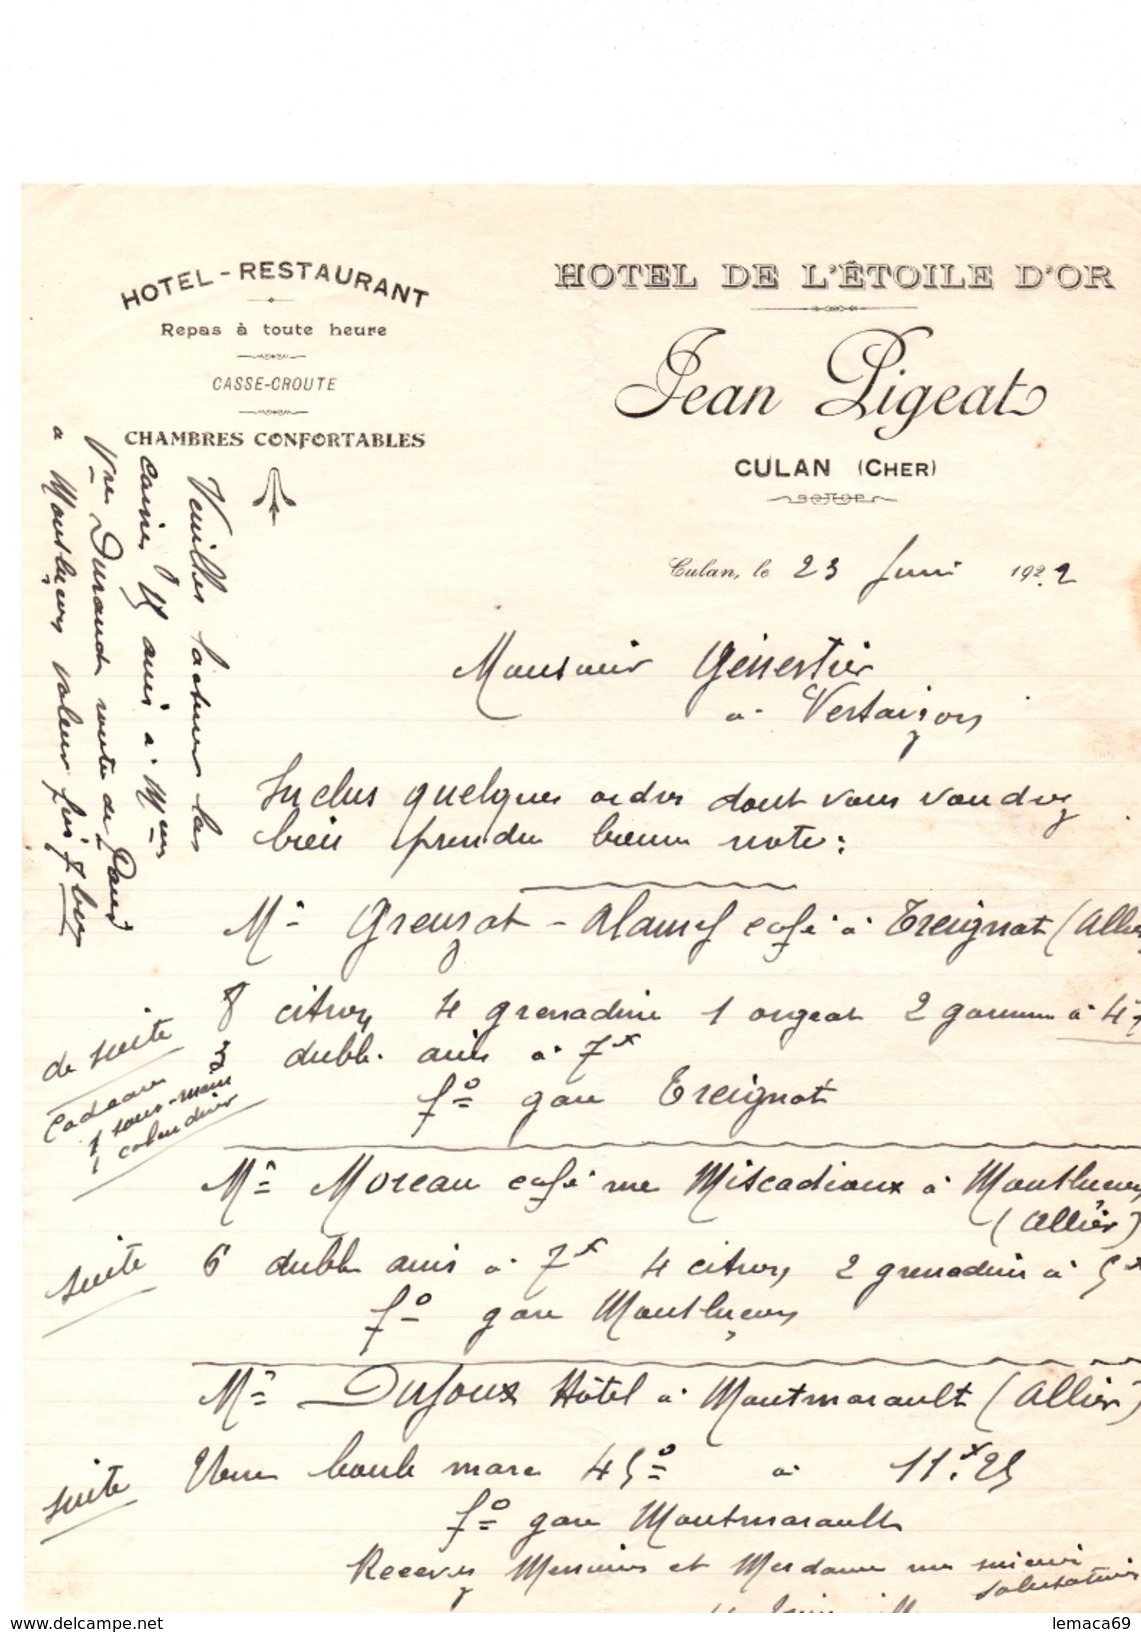 HOTEL-RESTAURANT
Repas à toute heure
CASSE-CROUTE
CHAMBRES CONFORTABLES
HOTEL DE L'ÉTOILE D'OR
Jean Pigeat
CULAN (CHER)
Culan, le 23 Juin 1922
Monsieur Génestier
à Vertaizon
Inclus quelques ordres dont vous voudrez
bien prendre bonne note:
Mr Greuzat - café à Treignat (Allier
8 citron 4 grenadine 1 orgeat 2 gomme à 4
3 double anis à 7x
fo gare Treignat
de suite
cadeau
1 sous-main
1 calendrier
Mr Moreau café rue Miscadioux à Montluçon
(Allier)
suite
6 double anis à 7x 4 citron 2 grenadine à 5x
fo gare Montluçon
Mr Dufoux Hôtel à Montmarault (Allier)
suite
Une bonb marc 45o à 11x.25
fo gare Montmarault
Recevez Messieurs et Mesdames mes
salutations
Veuillez facturer les
caisses anis à Mrs
Vve Durand route de Paris
à Montluçon valeur fin 7bre
www.delcampe.net
lemaca69